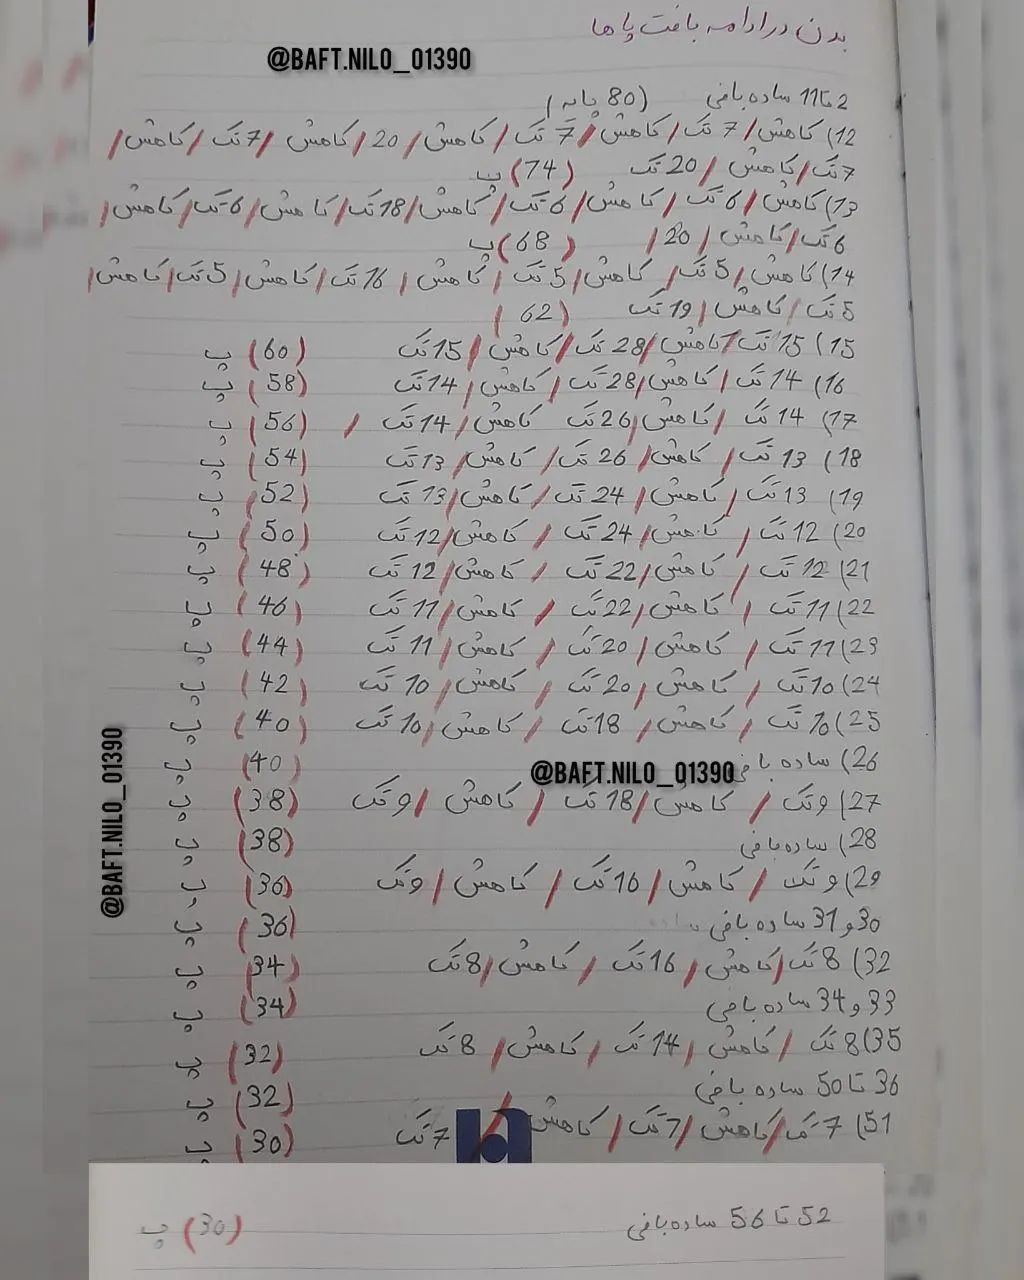 بدن در ادامه بافت پاها
@BAFT.NILO_01390
2 تا 11 ساده بافی (80 پایه)
12) کاهش / 7 تک / کاهش / 7 تک / کاهش / 20 / کاهش / 7 تک / کاهش /
7 تک / کاهش / 20 تک (74) پ
13) کاهش / 6 تک / کاهش / 6 تک / کاهش / 18 تک / کاهش / 6 تک / کاهش /
6 تک / کاهش / 20 / (68) پ
14) کاهش / 5 تک / کاهش / 5 تک / کاهش / 16 تک / کاهش / 5 تک / کاهش /
5 تک / کاهش / 19 تک (62)
15) 15 تک / کاهش / 28 تک / کاهش / 15 تک (60) پ
16) 14 تک / کاهش / 28 تک / کاهش / 14 تک (58) پ
17) 14 تک / کاهش / 26 تک کاهش / 14 تک / (56) پ
18) 13 تک / کاهش / 26 تک / کاهش / 13 تک (54) پ
19) 13 تک / کاهش / 24 تک / کاهش / 13 تک (52) پ
20) 12 تک / کاهش / 24 تک / کاهش / 12 تک (50) پ
21) 12 تک / کاهش / 22 تک / کاهش / 12 تک (48) پ
22) 11 تک / کاهش / 22 تک / کاهش / 11 تک (46) پ
23) 11 تک / کاهش / 20 تک / کاهش / 11 تک (44) پ
24) 10 تک / کاهش / 20 تک / کاهش / 10 تک (42) پ
25) 10 تک / کاهش / 18 تک / کاهش / 10 تک (40) پ
26) ساده بافی (40) پ
@BAFT.NILO_01390
@BAFT.NILO_01390
27) 9 تک / کاهش / 18 تک / کاهش / 9 تک (38) پ
28) ساده بافی (38) پ
29) 9 تک / کاهش / 16 تک / کاهش / 9 تک (36) پ
30 و 31 ساده بافی (36) پ
32) 8 تک / کاهش / 16 تک / کاهش / 8 تک (34) پ
33 و 34 ساده بافی (34) پ
35) 8 تک / کاهش / 14 تک / کاهش / 8 تک (32) پ
36 تا 50 ساده بافی (32) پ
51) 7 تک / کاهش / 7 تک / کاهش / 7 تک (30) پ
52 تا 56 ساده بافی (30) پ